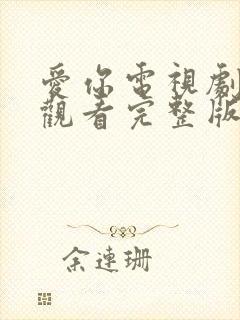 愛你電視劇
觀看完整版
余連珊